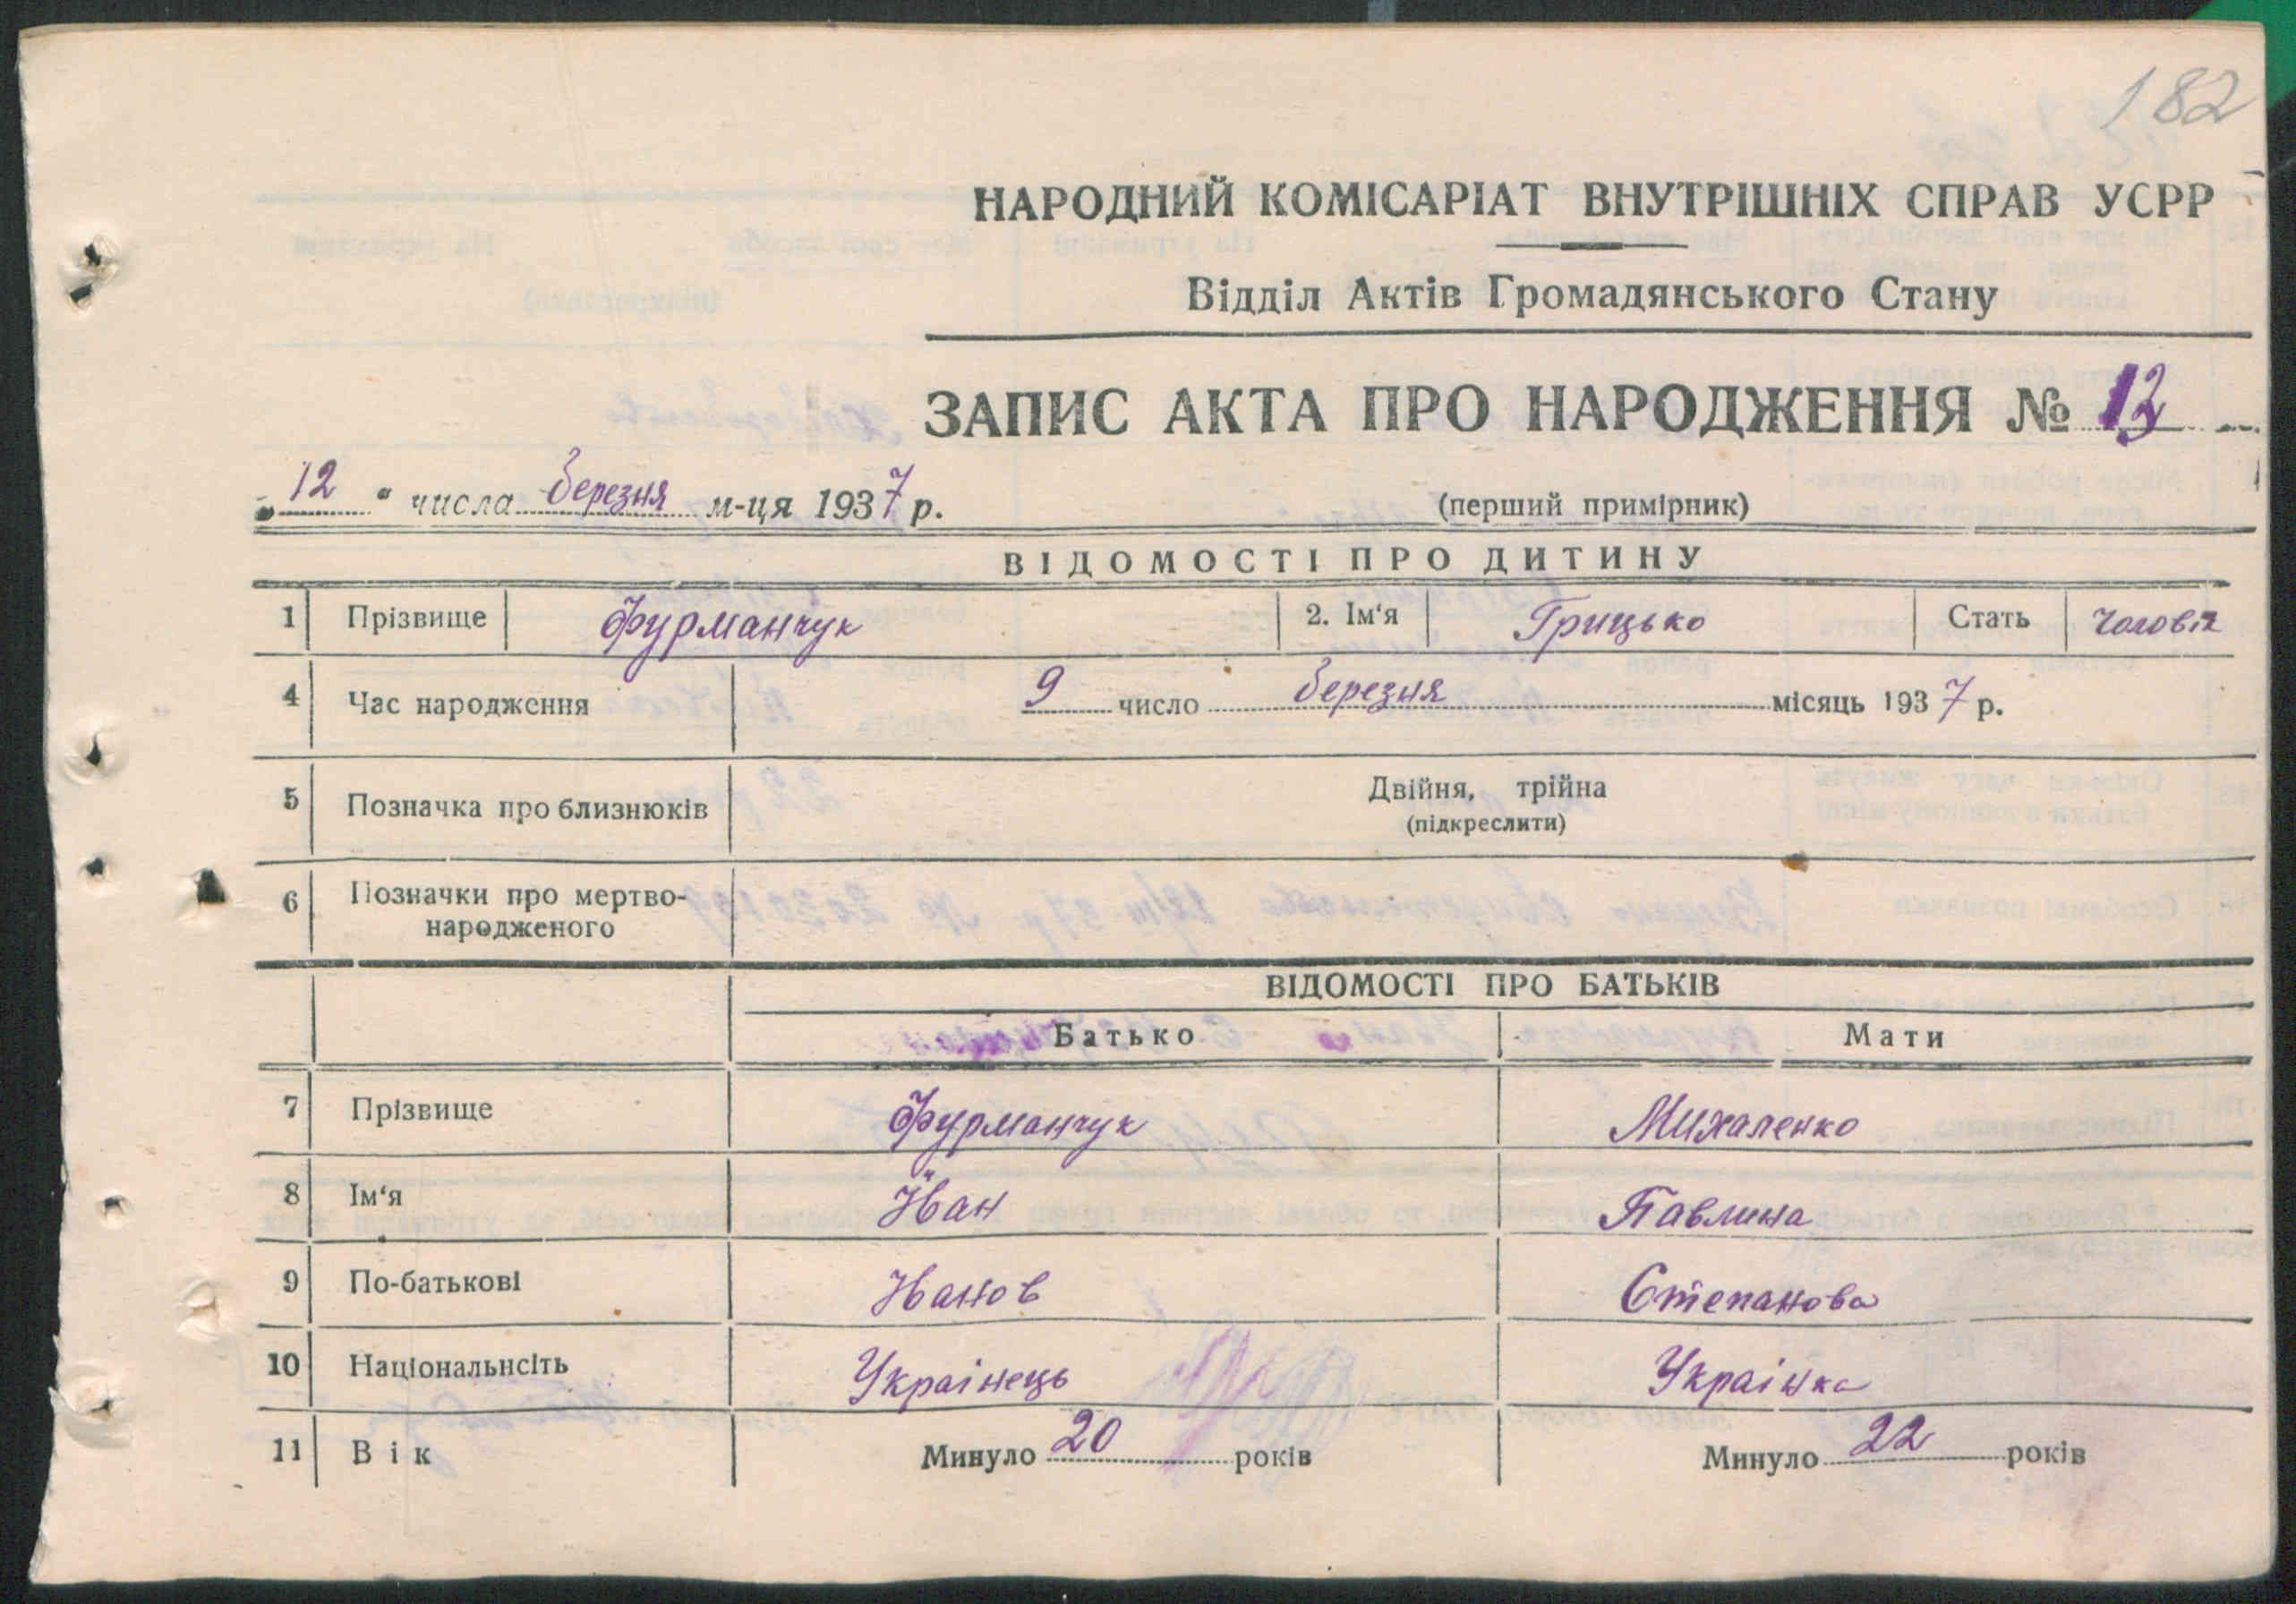 182
НАРОДНИЙ КОМІСАРІАТ ВНУТРІШНІХ СПРАВ УСРР
Відділ Актів Громадянського Стану
ЗАПИС АКТА ПРО НАРОДЖЕННЯ № 13
„12“ числа березня м-ця 1937 р.
(перший примірник)
ВІДОМОСТІ ПРО ДИТИНУ
1 Прізвище Фурманчук 2. Ім‘я Грицько Стать чоловіч
4 Час народження 9 число березня місяць 1937 р.
5 Позначка про близнюків Двійня, трійна
(підкреслити)
6 Позначки про мертво-
народженого
ВІДОМОСТІ ПРО БАТЬКІВ
Батько Мати
7 Прізвище Фурманчук Михаленко
8 Ім‘я Іван Павлина
9 По-батькові Іванов Степанова
10 Національнсіть Украінець Украінка
11 Вік Минуло 20 років Минуло 22 років